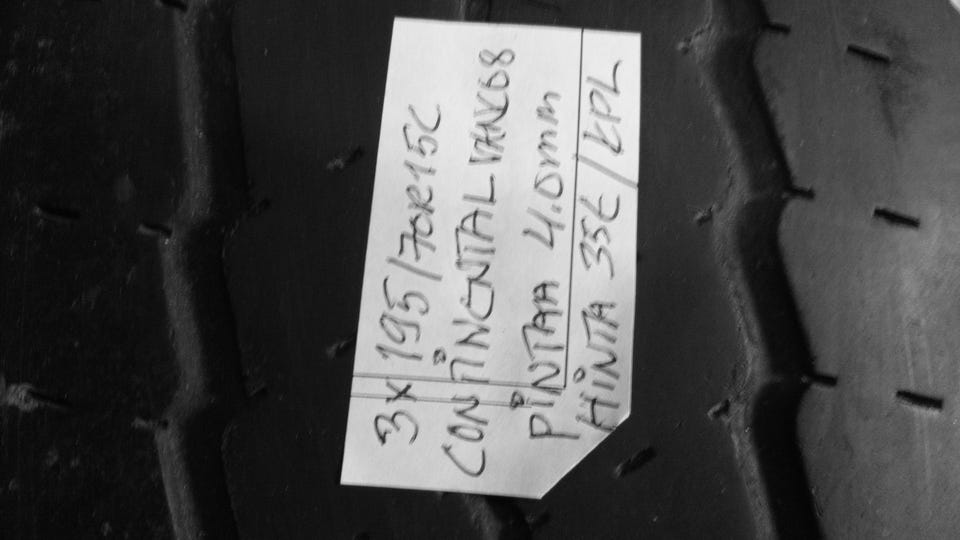 3x 195/70R15C
CONTINENTAL VANCO8
PINTAA 4.0mm
HINTA 35€/KPL